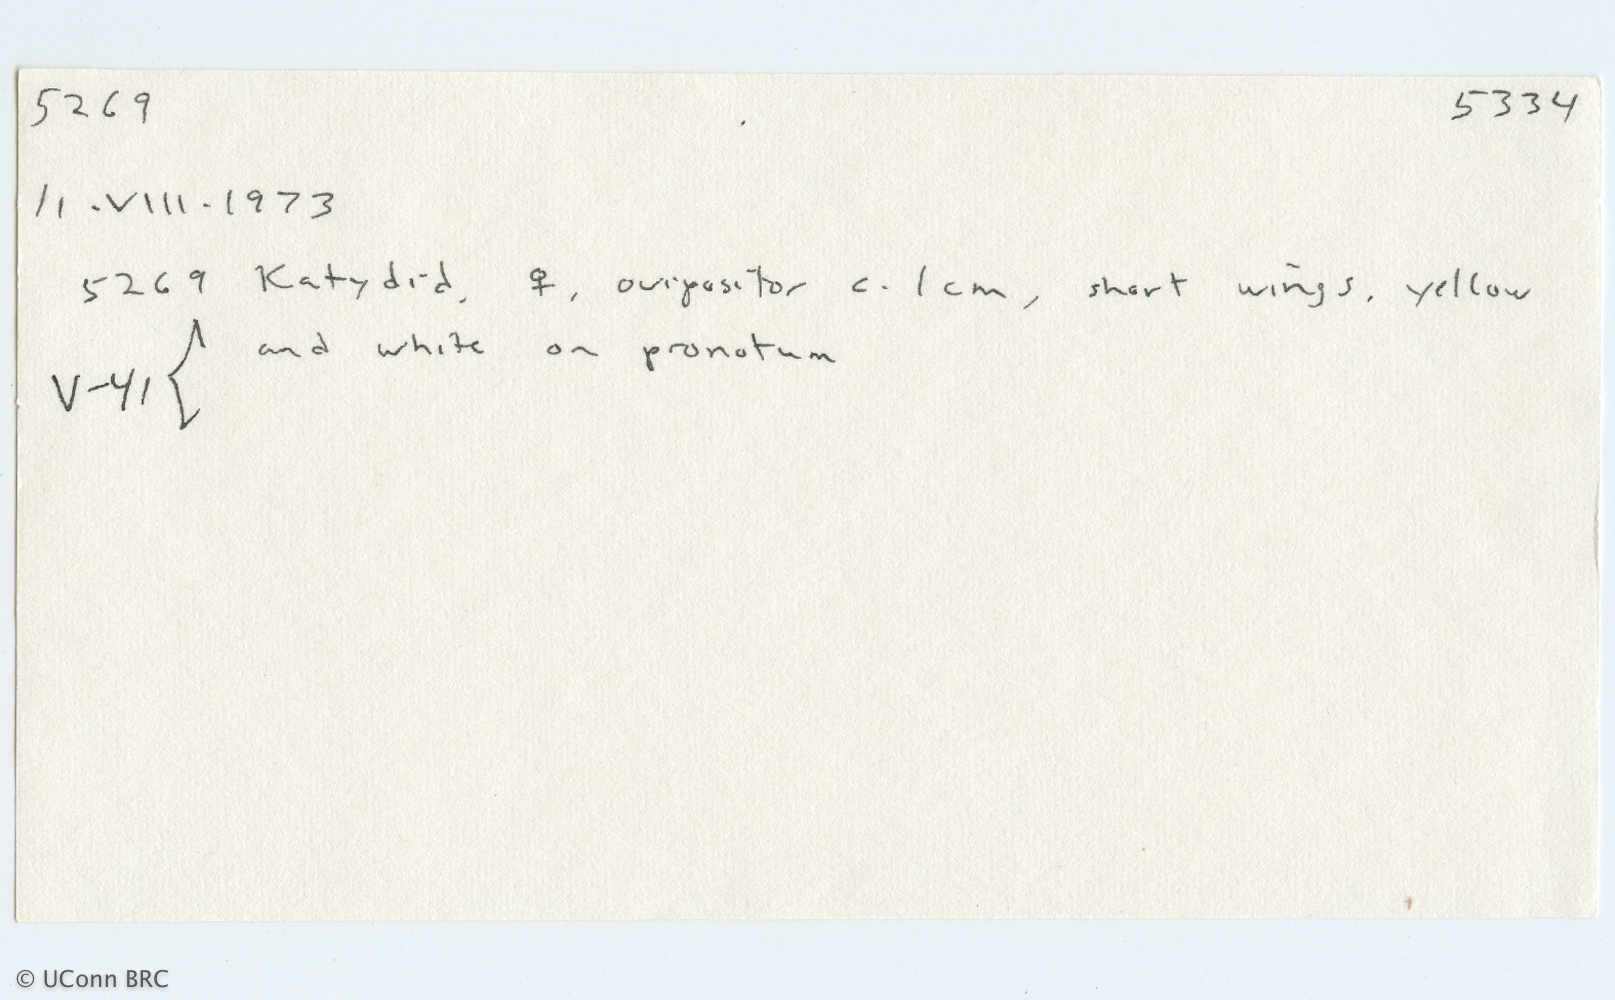 5269 5334
11.VIII.1973
5269 Katydid, ♀, ovipositor c. 1cm, short wings, yellow
and white on pronotum
V-41 {
© UConn BRC